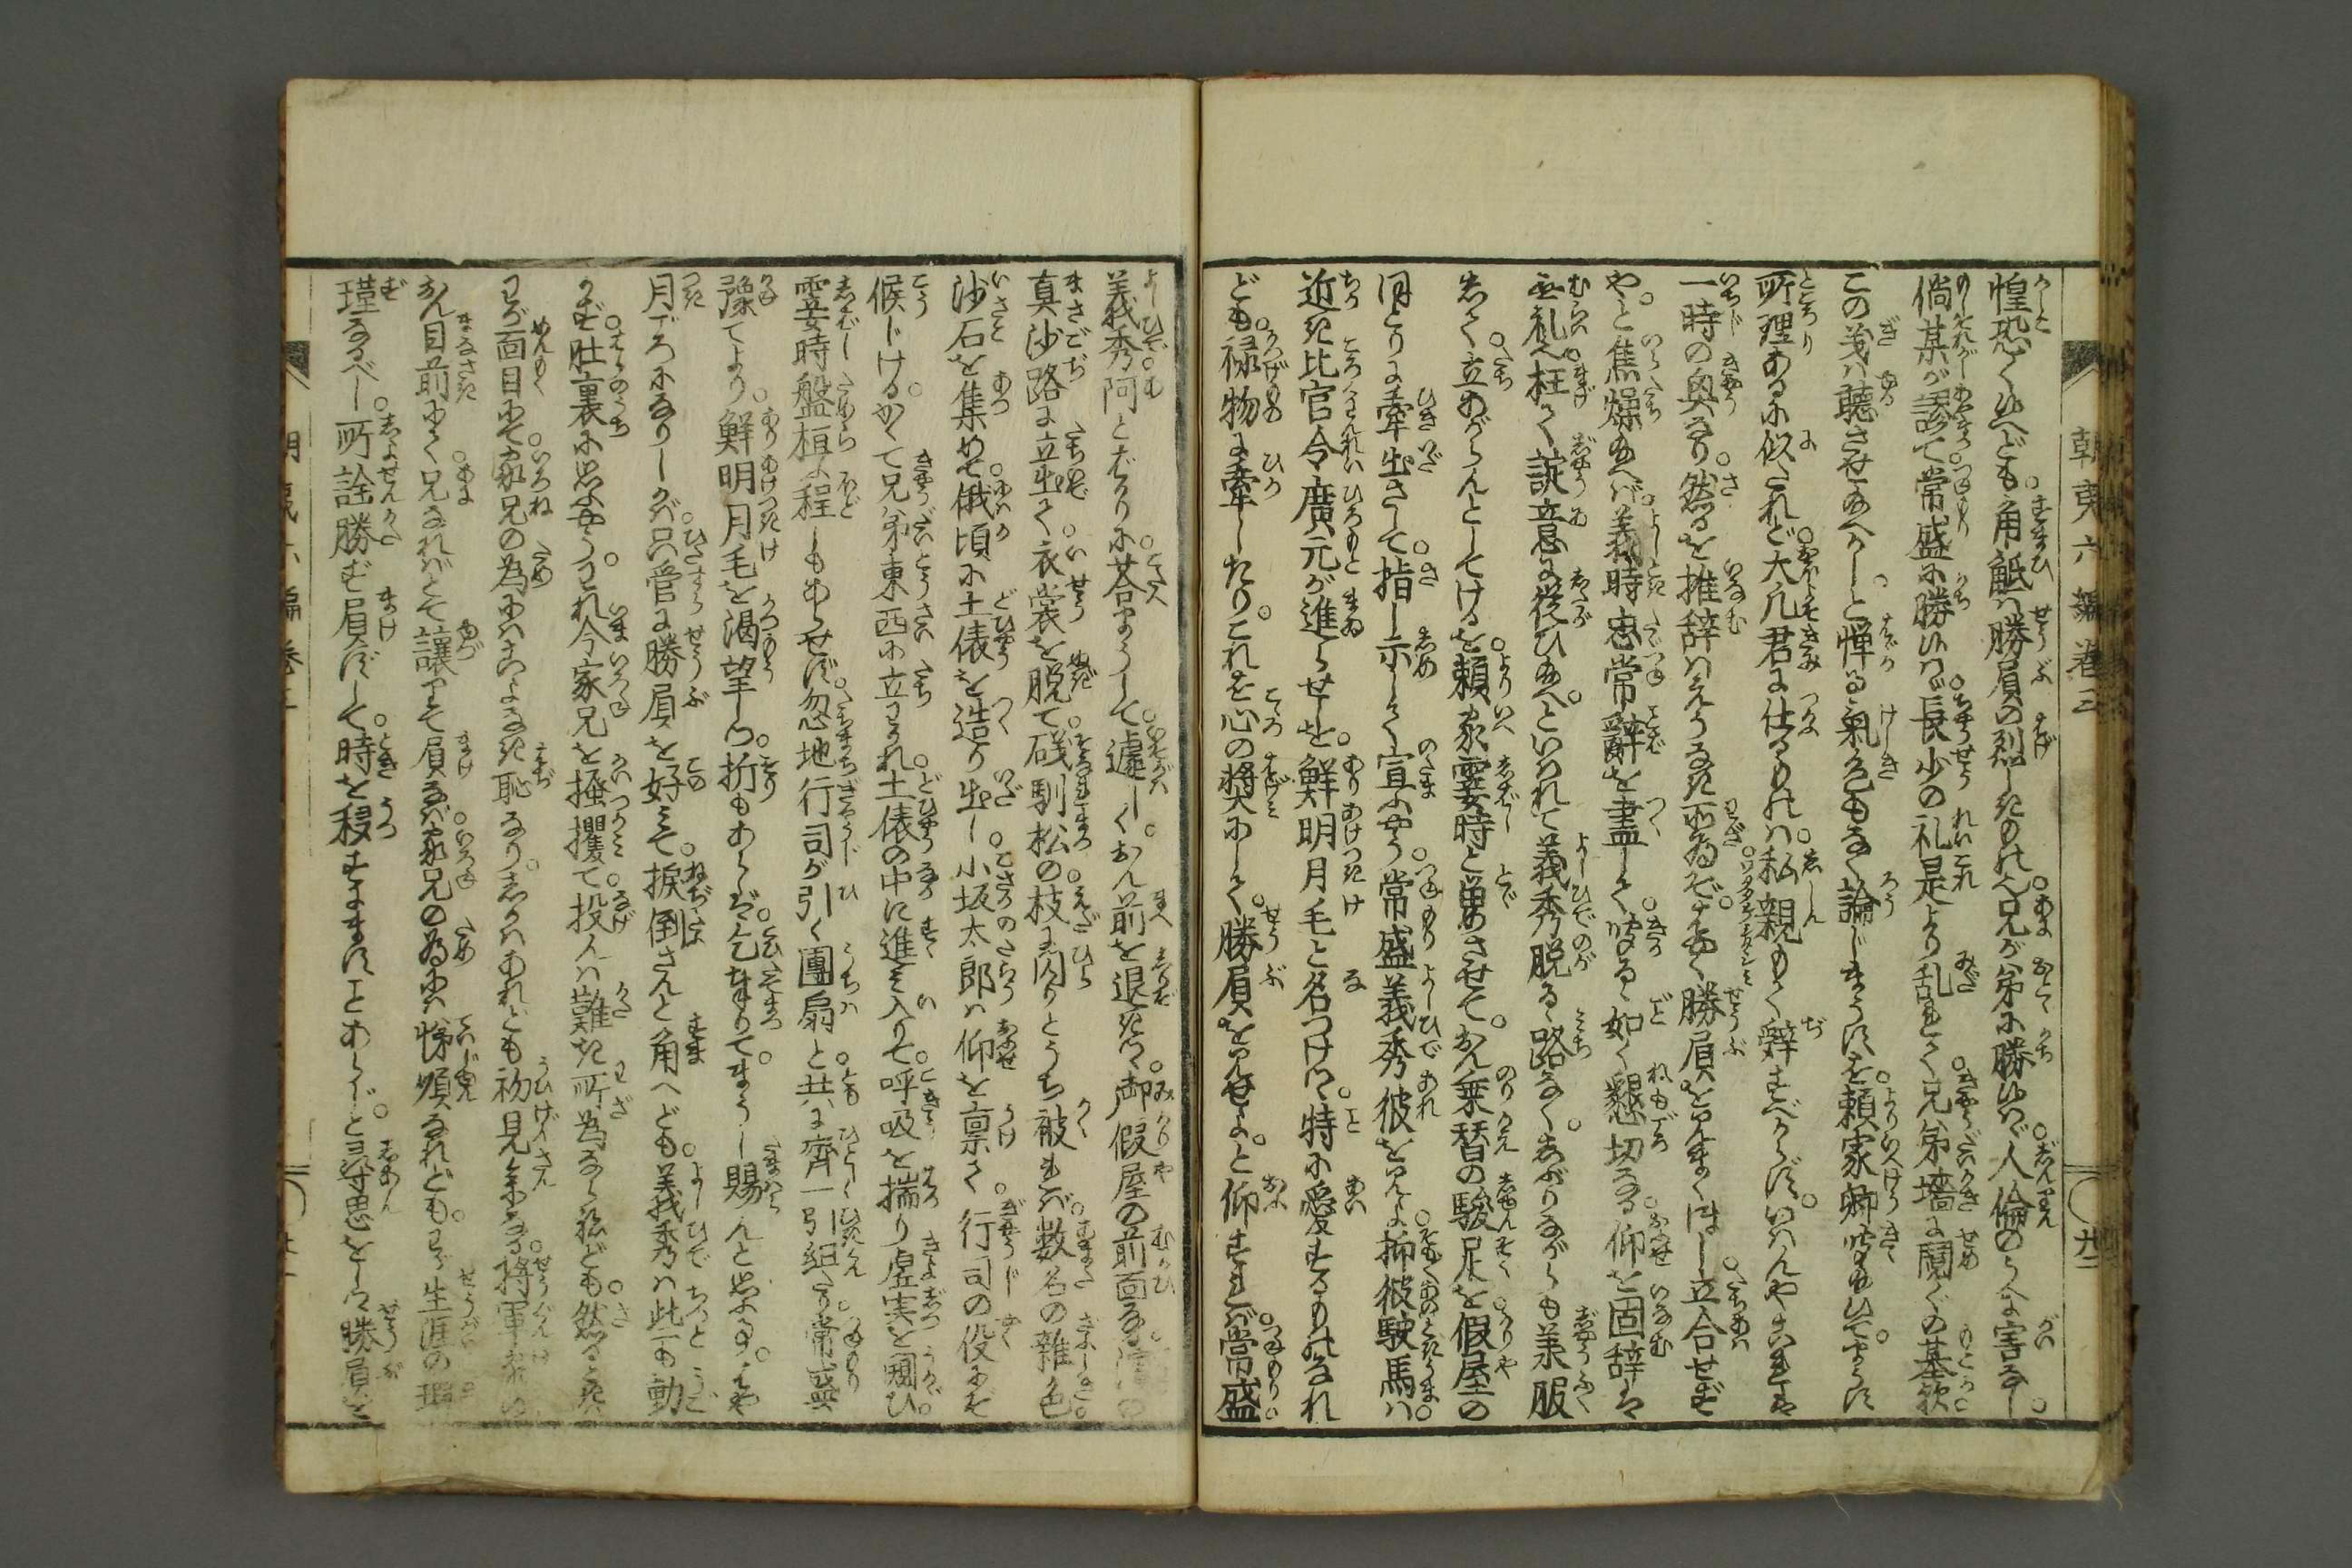 朝夷六編卷三
惶恐く候へども。角觝は勝負の烈しきもの也。兄が弟に勝候はゞ人倫のうへに害なし。
倘某が謬て常盛に勝候はゞ長少の礼是より乱れて兄弟墻に鬩ぐの基歟。
この義は聴させ給へかし。と憚る氣色もなく論じまうすを。頼家卿听給ひて。まうす
所理あるに似たれど。大凡君に仕るものは。私親もて辞すべからず。いはんやこれは
一時の興なり。然るを推辞はえうなき所為ぞ。とく勝負を見まくほし。立合せずや
や。と焦燥給へば。義時忠常辭を盡して。听るゝ如く懇切なる。仰を固辞は
無礼也。枉て諚意に從ひ給へ。といはれて義秀脱るゝ路なく。しぶりながらも美服
しく。立あがらんとしてけるを。頼家霎時と留させて。おん乗替の駿足を。假屋の
ほとりに牽出さして。指し示して宣ふやう。常盛義秀彼を見よ。抑彼駛馬は
近き比官令廣元が進らせしを。鮮明月毛と名つけつ。特に愛するものなれ
ども。禄物に牽したり。これを心の奬にして。勝負を見せよ。と仰すれば。常盛。
義秀。阿とばかりに荅まうして。遽しく。おん前を退きつ。御假屋の前面なる
真沙路に立出て。衣裳を脱て。磯馴松の。枝に閃りとうち被れば。数名の雜色。
沙石を集めて。俄頃に土俵を造り出し。小坂太郎は仰を禀て。行司の役にぞ
候じける。かくて兄弟東西に立わかれ。土俵の中に進み入りて。呼吸を揣り虚実を闚ひ。
霎時盤桓ふ程しもあらせず。忽地行司が引く團扇と。共に齊一引組たり。常盛
豫てより。鮮明月毛を渇望しつ。折もあらば。乞奉りて。まうし賜らんと思ふ事。はや
月ごろになりしかば。只管に勝負を好みて。捩倒さんと角へども。義秀は些も動
かず。肚裏に思ふやう。われ今家兄を掻攫て。投んは難き所為ならねども。然るとき
わが面目にて。家兄の為にはこよなき恥なり。しかはあれども初見参なる。將軍家の
おん目前にて。兄なればとて讓りて負なば。家兄の為には。悌順なれども。わが生涯の瑕
瑾なるべし。所詮勝ず負ずして。時を移すにますことあらじ。と尋思をしつ勝負を